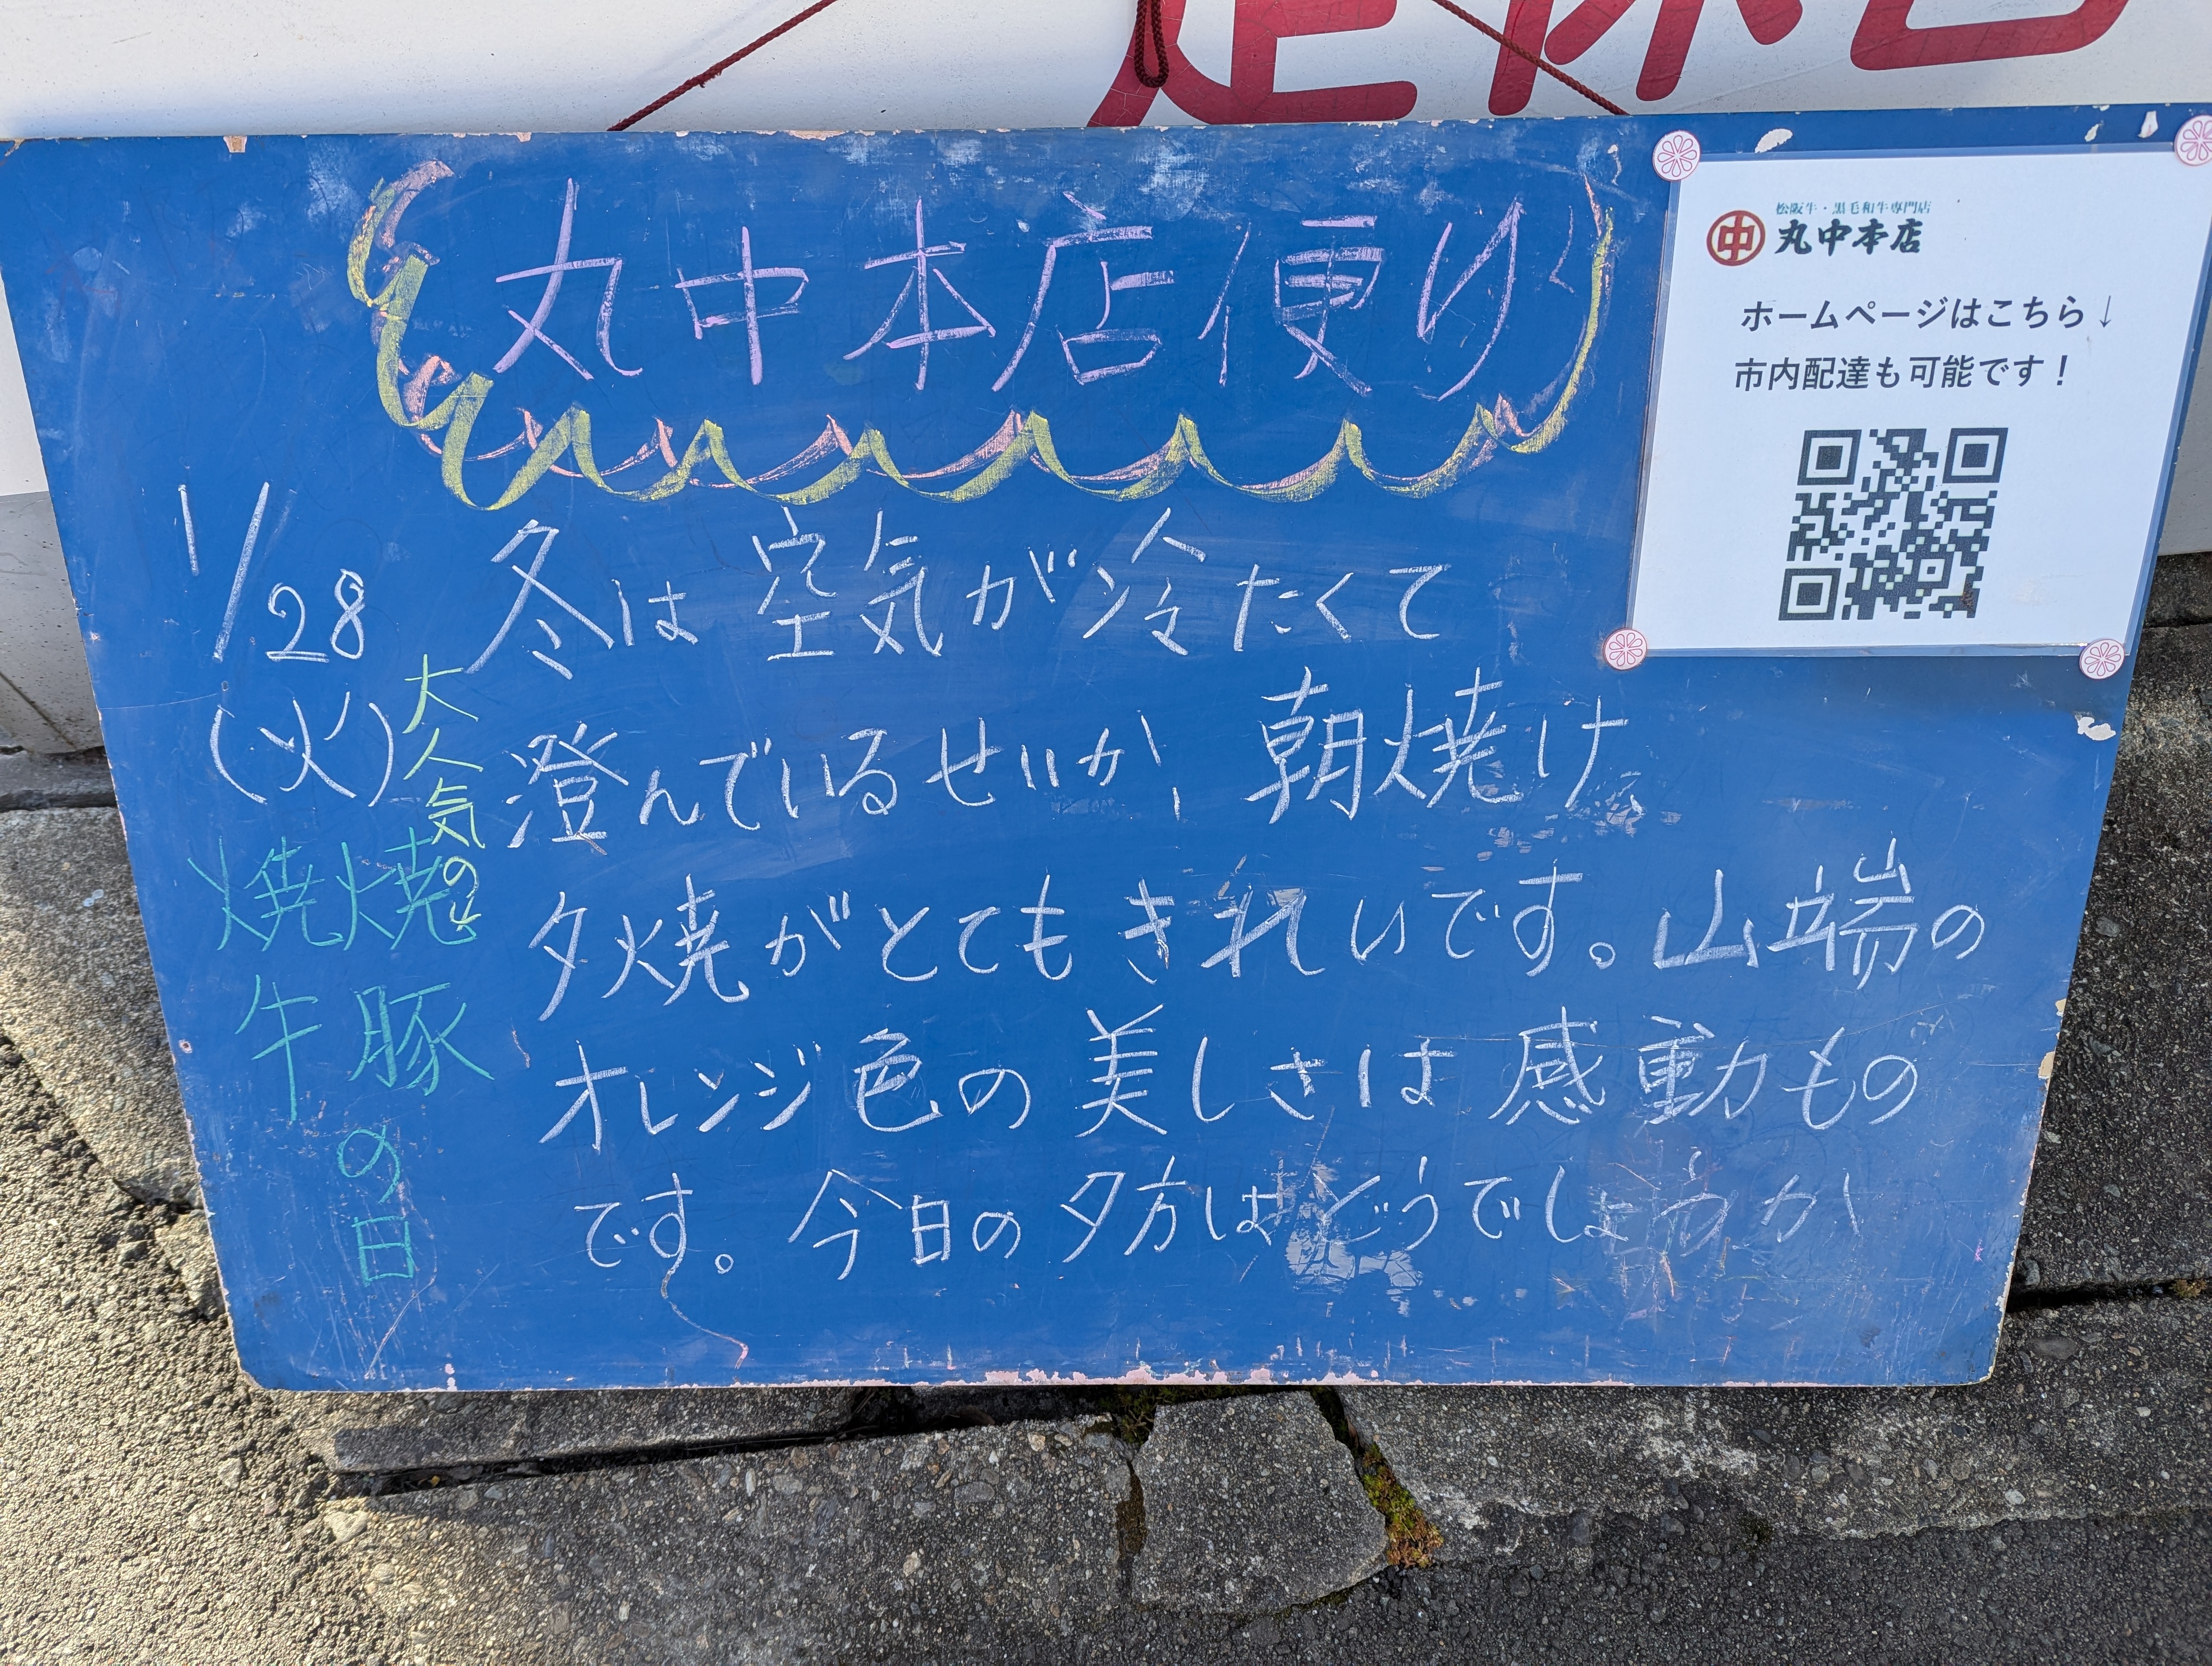 定休日
丸中本店便り
松阪牛・黒毛和牛専門店
中 丸中本店
ホームページはこちら↓
市内配達も可能です！
1/28
(火)
大人気の
焼豚の日
焼牛
冬は空気が冷たくて
澄んでいるせいか、朝焼け
夕焼がとてもきれいです。山端の
オレンジ色の美しさは感動もの
です。今日の夕方はどうでしょうか